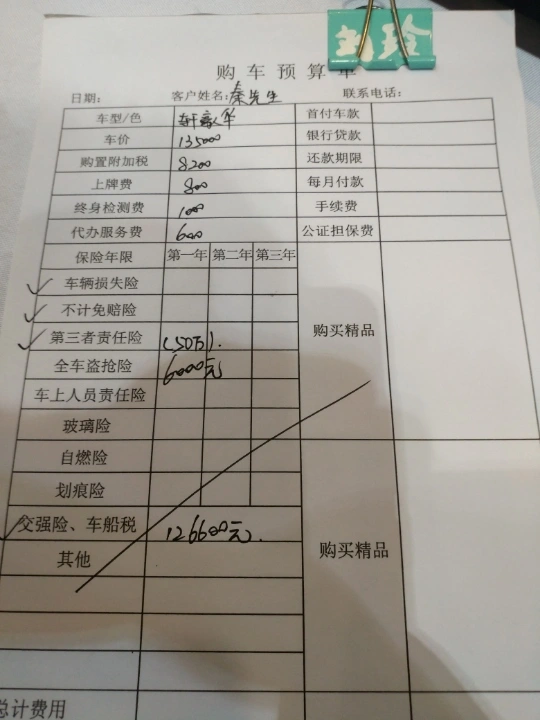 购车预算单
日期: 客户姓名:秦先生 联系电话:
车型/色 轩 豪华 首付车款
车价 135000 银行贷款
购置附加税 8200 还款期限
上牌费 800 每月付款
终身检测费 1000 手续费
代办服务费 600 公证担保费
保险年限 第一年 第二年 第三年
车辆损失险
不计免赔险
购买精品
第三者责任险 (50万).
全车盗抢险 6000元
车上人员责任险
玻璃险
自燃险
划痕险
交强险、车船税 126600元.
购买精品
其他
总计费用